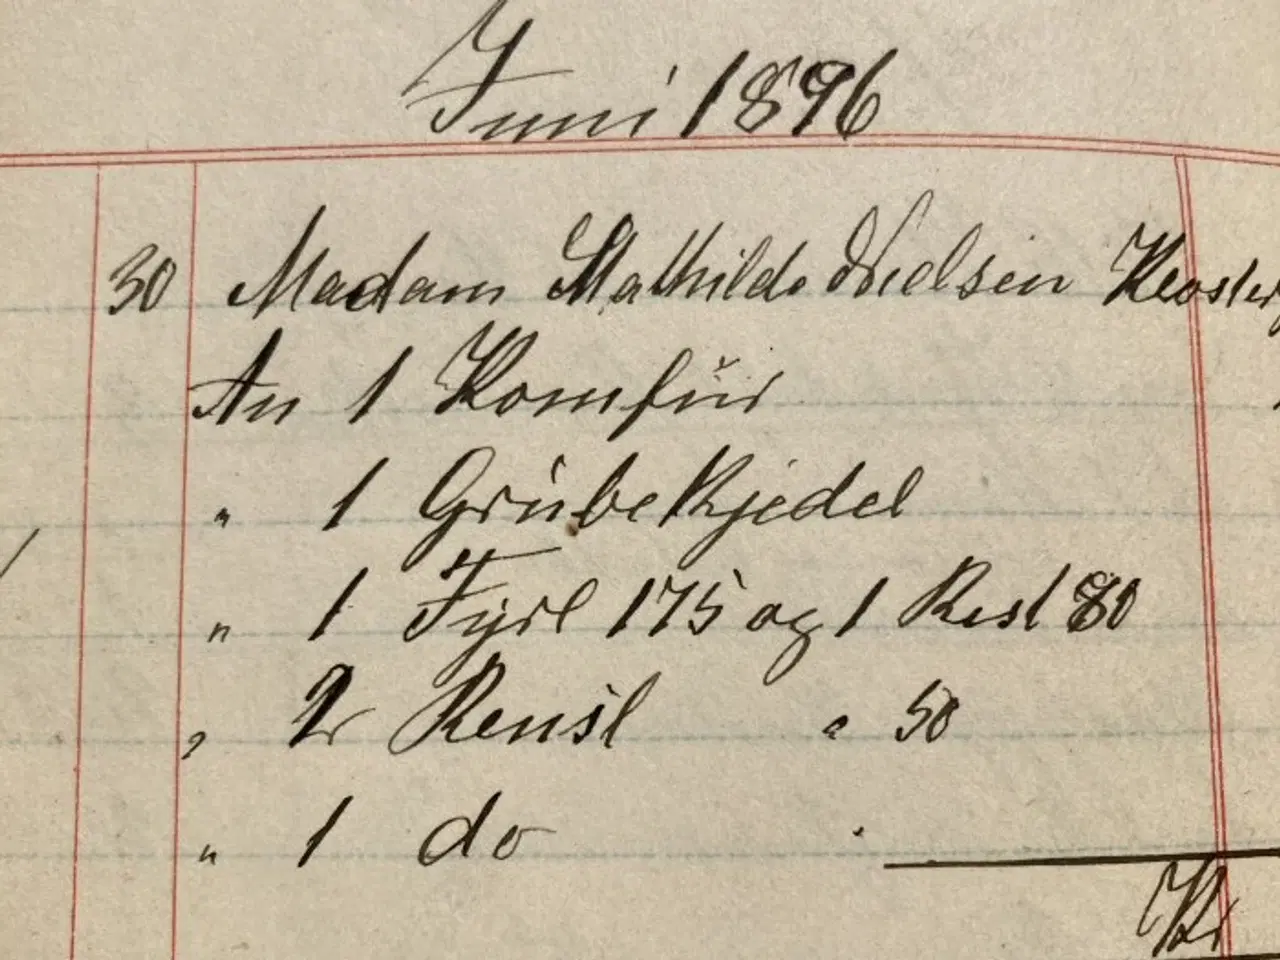 Juni 1896
30 Madam Mathilde Nielsen
An 1 Komfür
" 1 Grubekjedel
" 1 Fyrl 175 og 1 Rist 80
" 2 Rensl a 50
" 1 do
Kr